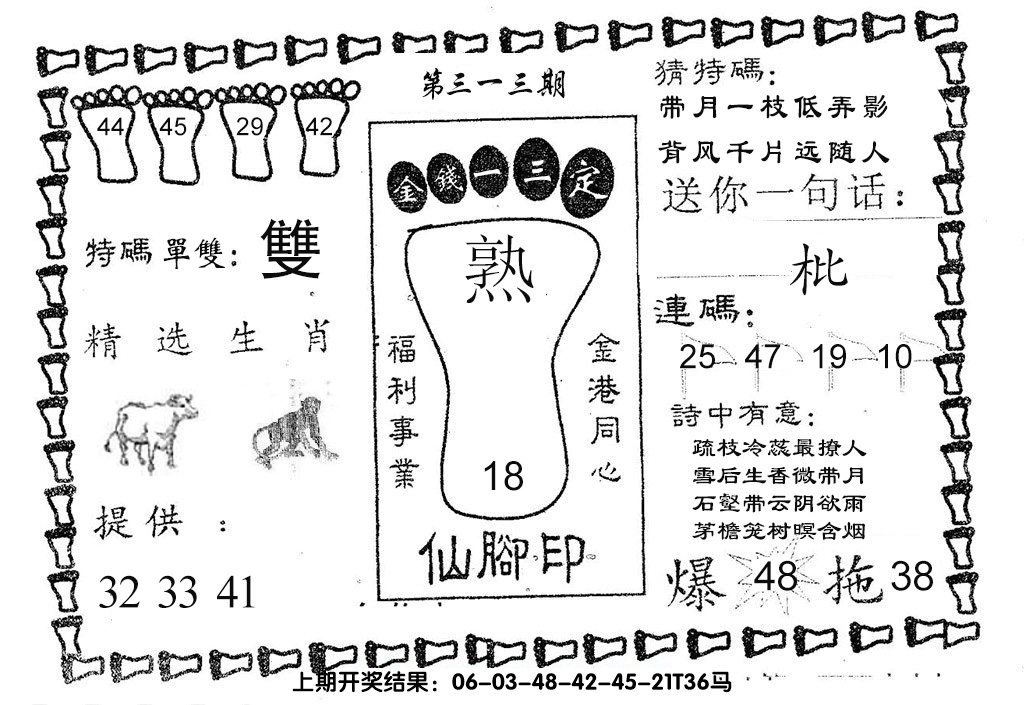 第三一三期
44 45 29 42
特碼單雙：雙
精选生肖
提供：
32 33 41
金錢一三定
熟
福利事業
金港同心
18
仙腳印
猜特碼：
带月一枝低弄影
背风千片远随人
送你一句话：
枇
連碼：
25 47 19 10
詩中有意：
疏枝冷蕊最撩人
雪后生香微带月
石壑带云阴欲雨
茅檐笼树暝含烟
爆 48 拖 38
上期开奖结果：06-03-48-42-45-21T36马